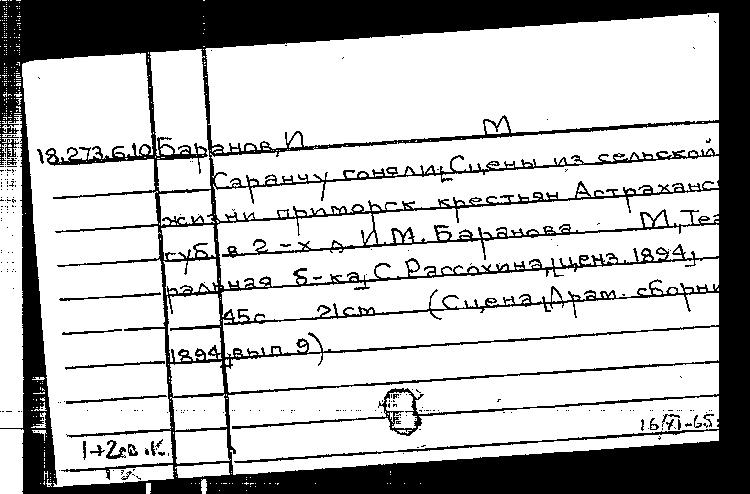 18.273.6.10 Баранов, И М
Саранчу гоняли; Сцены из сельской
жизни приморск крестьян Астраханс
губ. в 2-х д. И.М. Баранова. М., Теат
ральная б-ка, С. Рассохина, цена. 1894,
45с 21cm (Сцена, Драм. сборни
1894, вып. 9).
16/VI-65
1+2ов.К